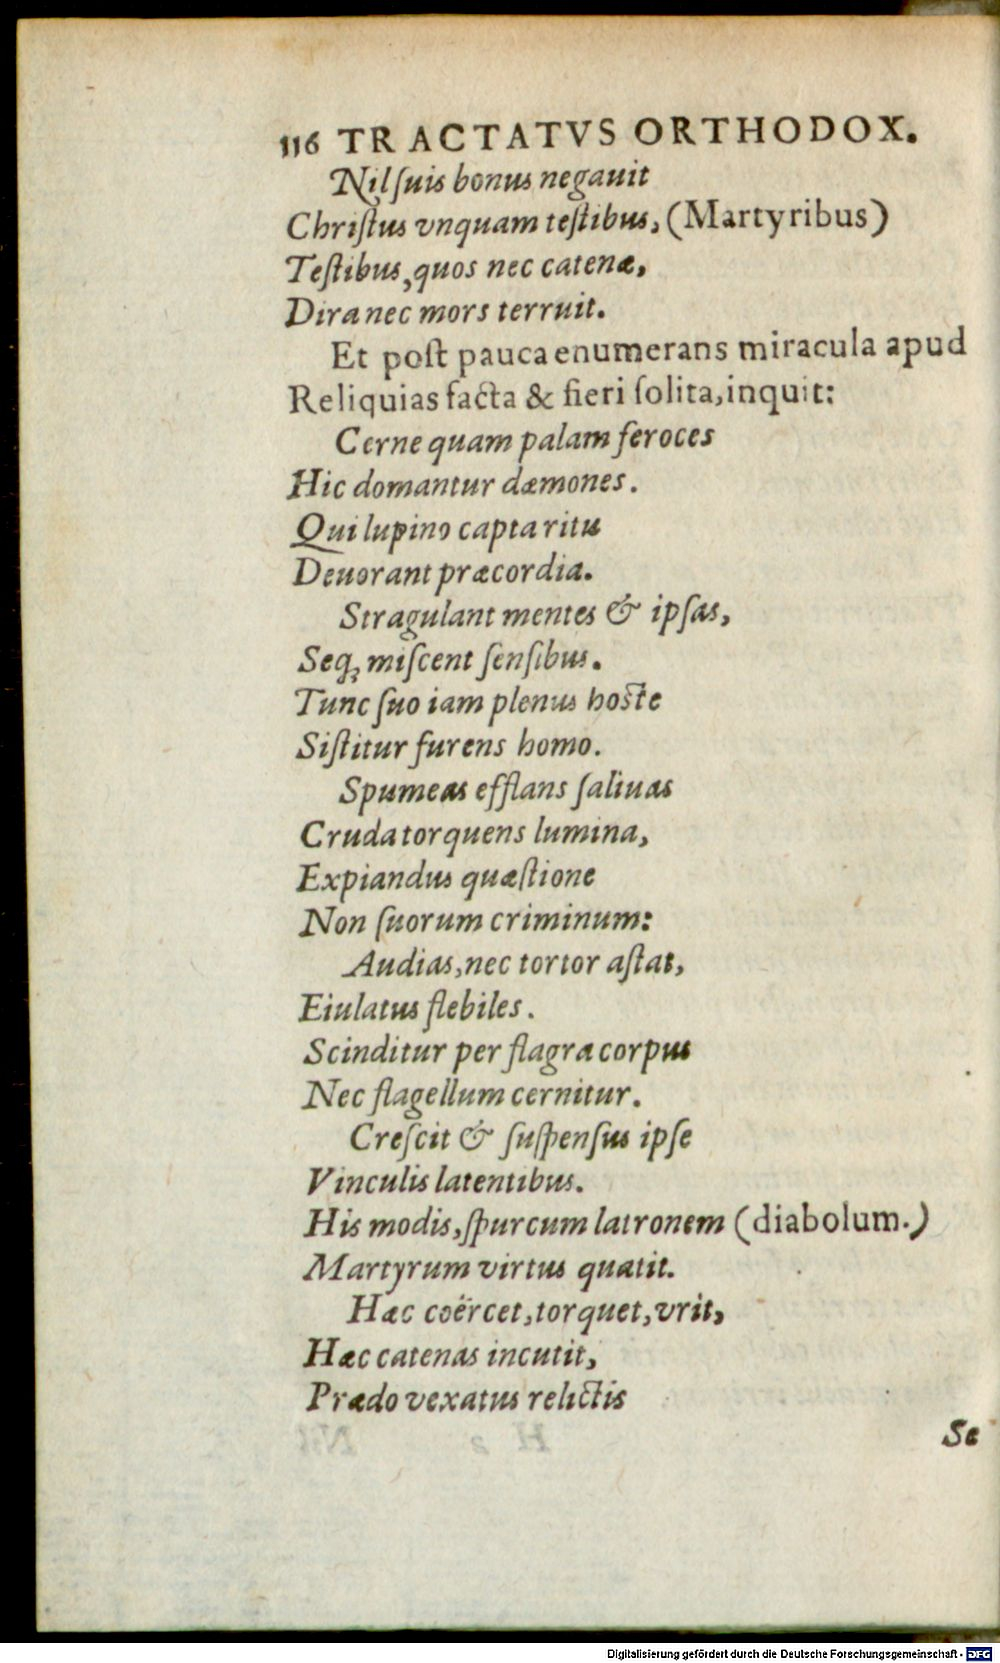 116 TRACTATVS ORTHODOX.
Nil ſuis bonus negauit
Chriſtus vnquam teſtibus, (Martyribus)
Teſtibus, quos nec catenæ,
Dira nec mors terruit.
Et poſt pauca enumerans miracula apud
Reliquias facta & fieri ſolita, inquit:
Cerne quam palam feroces
Hic domantur dæmones.
Qui lupino capta ritu
Deuorant præcordia.
Stragulant mentes & ipſas,
Seq; miſcent ſenſibus.
Tunc ſuo iam plenus hoſte
Siſtitur furens homo.
Spumeas efflans ſaliuas
Cruda torquens lumina,
Expiandus quæſtione
Non ſuorum criminum:
Audias, nec tortor aſtat,
Eiulatus flebiles.
Scinditur per flagra corpus
Nec flagellum cernitur.
Creſcit & ſuſpenſus ipſe
Vinculis latentibus.
His modis, ſpurcum latronem (diabolum.)
Martyrum virtus quatit.
Hæc coërcet, torquet, vrit,
Hæc catenas incutit,
Prædo vexatus relictis
Se
Digitalisierung gefördert durch die Deutsche Forschungsgemeinschaft - DFG